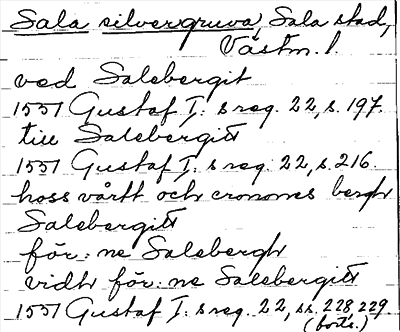 Sala silvergruva, Sala stad,
Västm. l.
ved Salebergit
1551 Gustaf I: s reg. 22, s. 197.
till Salebergitt
1551 Gustaf I: s reg. 22, s. 216.
hoss vårtt och cronones bergh
Salebergitt
för: ne Salebergh
vidh för: ne Salebergitt
1551 Gustaf I: s reg. 22, ss. 228, 229
(forts.)